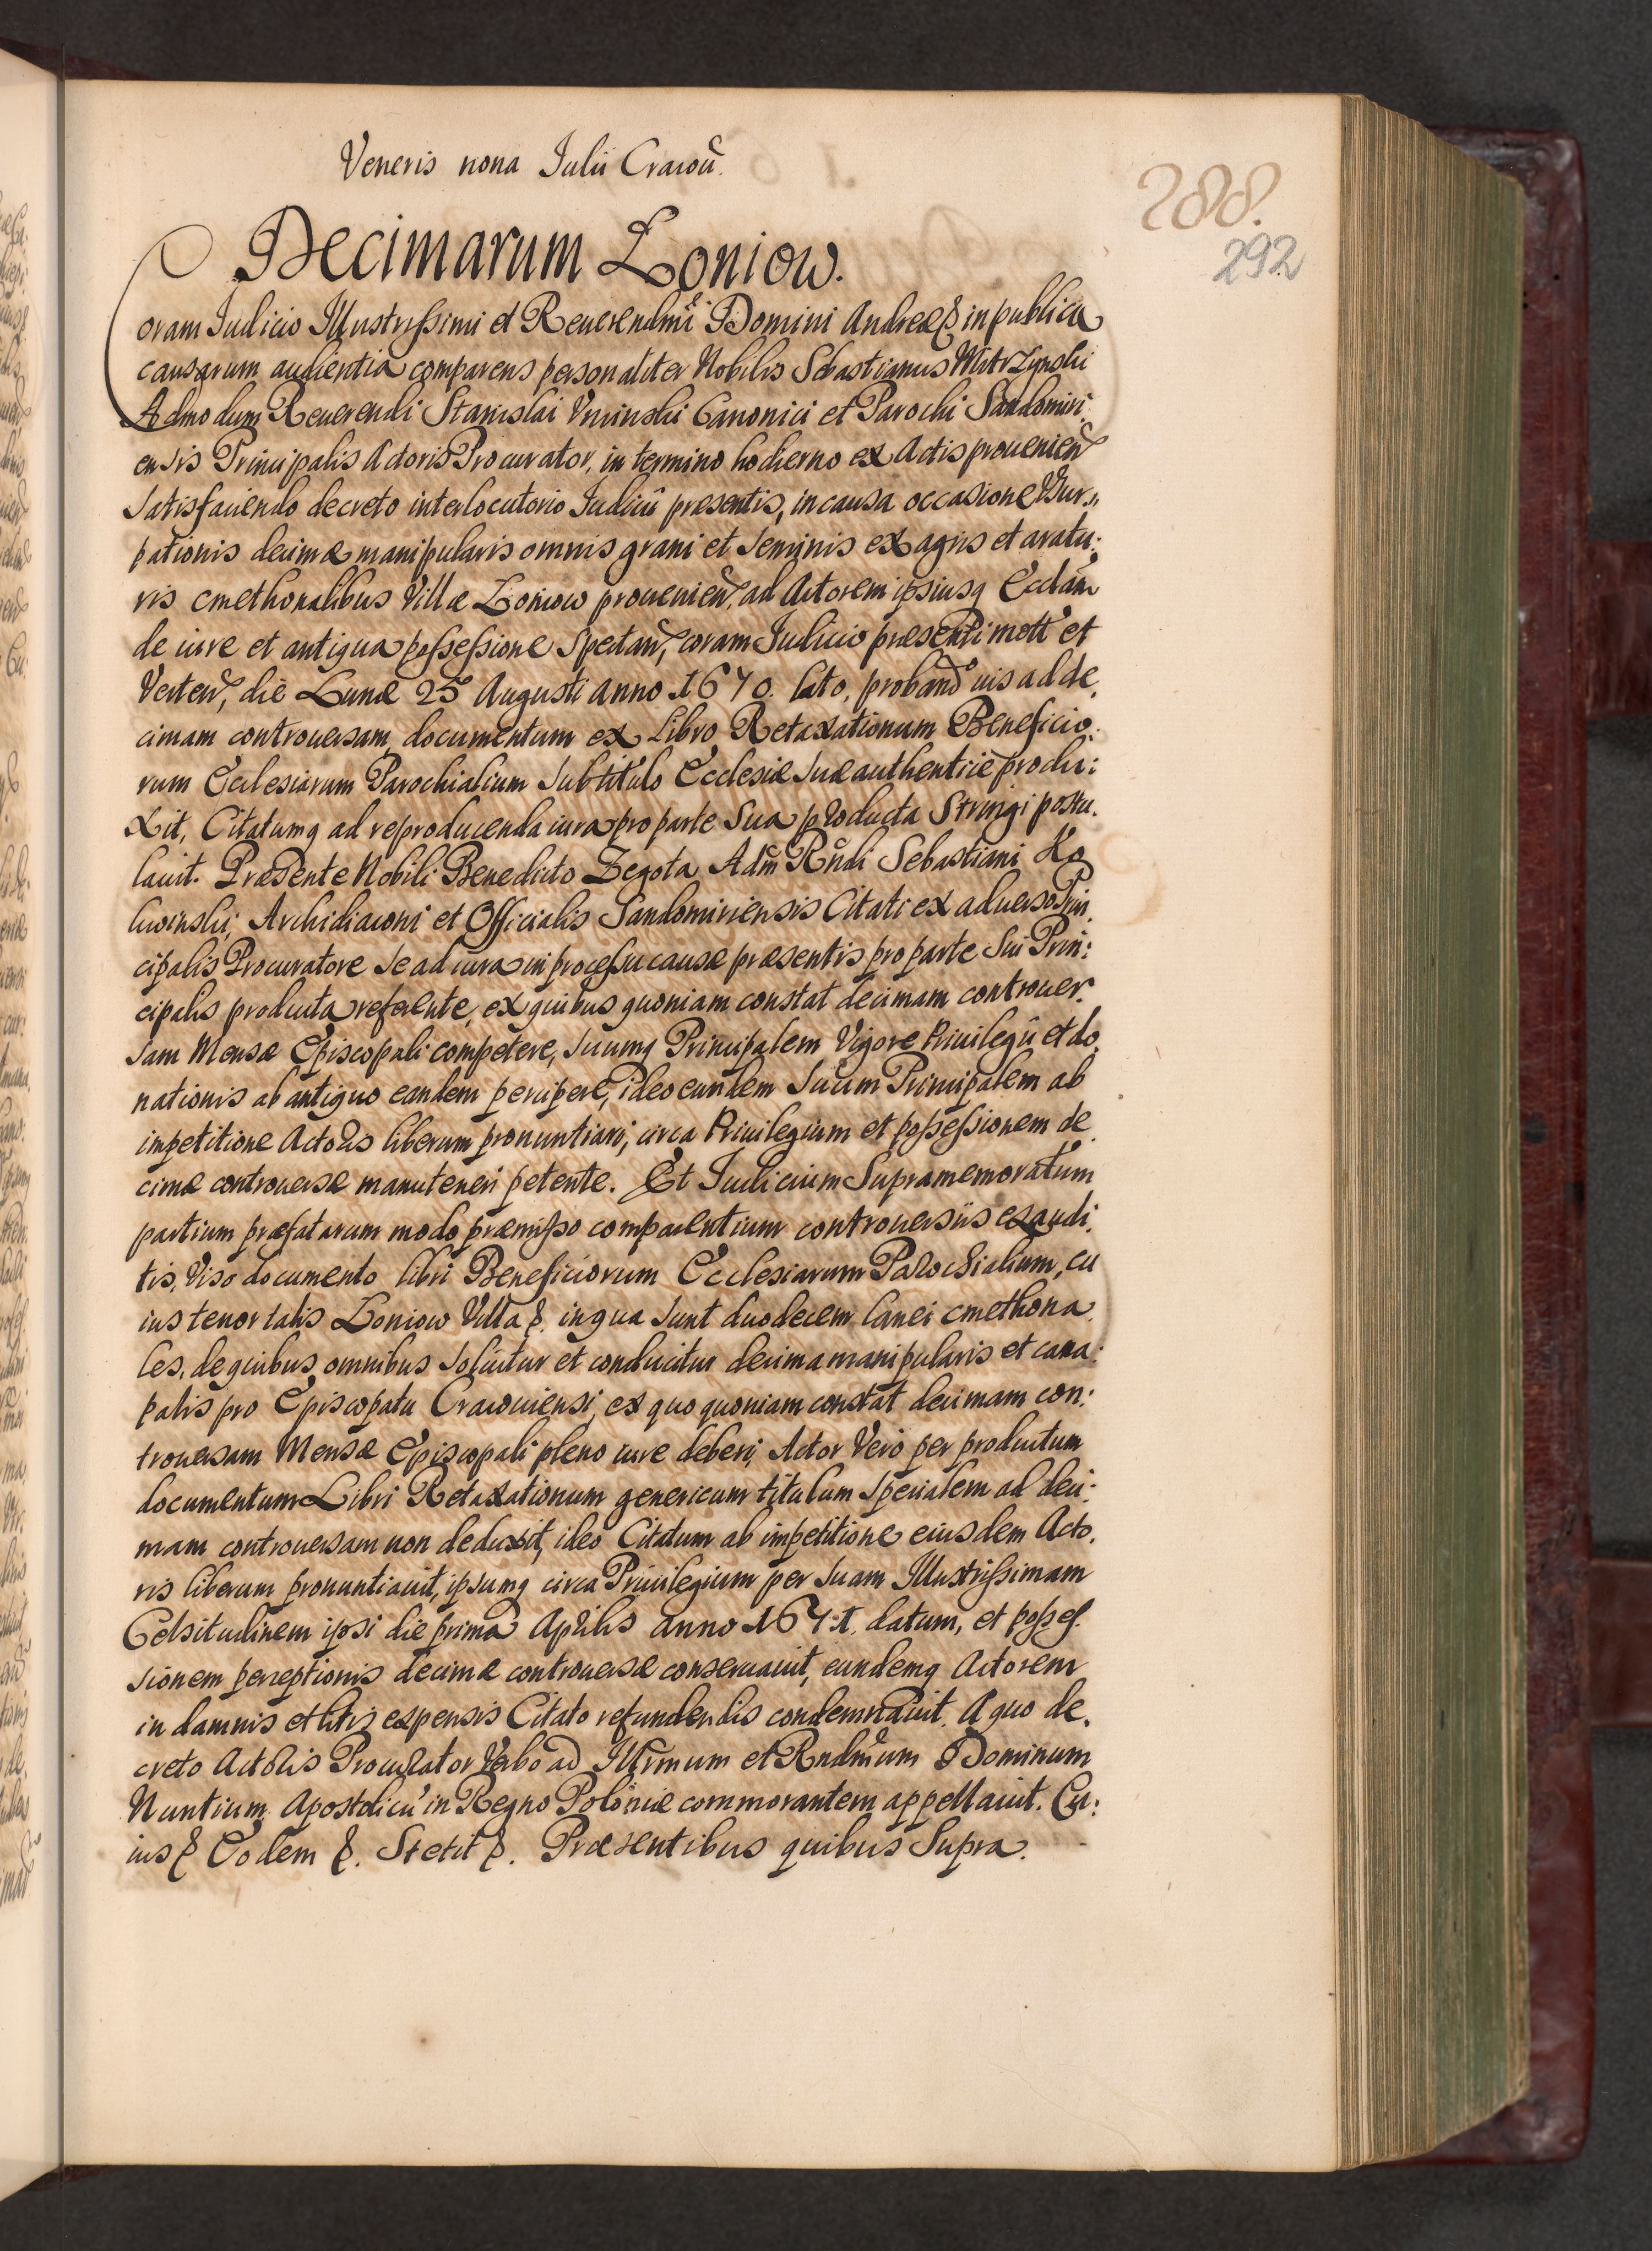 Veneris nona Iulii Cracou̅.
288.
292
Decimarum Łoniow.
Coram Iudicio Illustrissimi et Reuerendmi Domini Andreæ & in publica
causarum audientia comparens personaliter Nobilis Sebastianus
Admodum Reuerendi Stanislai Vninski Canonici et Parochi Sandomiri:
ensis Principalis Actoris Procurator, in termino hodierno ex Actis prouenien
Satisfaciendo decreto interlocutorio Iudicii præsentis, in causa occasione Vsur„
pationis decimæ manipularis omnis grani et Seminis ex agris et aratu:
ris cmethonalibus Villæ Łoniow prouenien, ad Actorem ipsiusq Eccla̅m
de iure et antiqua possessione Spectan, coram Iudicio præsenti mott et
Verten, die Lunæ 25 Augusti anno 1670. lato, proband ius ad de,
cimam controuersam, documentum ex Libro Retaxationum Beneficio:
rum Ecclesiarum Parochialium Subtitulo Ecclesiæ Suæ authentice produ:
xit, Citatumq ad reproducenda iura pro parte Sua producta Stringi postu.
lauit. Præsente Nobili Benedicto Zegota Adm Rndi Sebastiani Ko
kwinski, Archidiaconi et Officialis Sandomiriensis Citati ex aduerso Prin,
cipalis Procuratore Se ad iura in processu causæ præsentis pro parte Sui Prin:
cipalis producta referente, ex quibus quoniam constat decimam controuer.
Sam Mensæ Episcopali competere, Suumq Principalem Vigore Priuilegii et do,
nationis ab antiquo eandem percipere, ideo eundem Suum Principalem ab
impetitione Actoris liberum pronuntiari, circa Priuilegium et possessionem de
cimæ controuersæ manuteneri petente. Et Iudicium Supramemoratum
partium præfatarum modo præmisso comparentium controuersiis exaudi,
tis, Viso documento libri Beneficiorum Ecclesiarum Parochialium, cu
ius tenor talis Łoniow Villa &. in qua Sunt duodecem lanei cmethona.
les, de quibus omnibus Soluitur et conducitur decima manipularis et cana:
palis pro Episcopatu Cracouiensi, ex quo quoniam constat decimam con:
trouersam Mensæ Episcopali pleno iure deberi, Actor Vero per productum
documentum Libri Retaxationum genericum titulum Specialem ad deci:
mam controuersam non deduxit, ideo Citatum ab impetitione eiusdem Acto,
ris liberum pronuntiauit, ipsumq circa Priuilegium per Suam Illustrissimam
Celsitudinem ipsi die prima Aprilis anno 1671. datum, et posses.
sionem perceptionis decimæ controuersæ conseruauit, eundemq Actorem
in damnis et litis expensis Citato refundendis condemnauit. A quo de,
creto Actoris Procurator Verbo ad Illrmum et Rndmum Dominum
Nuntium Apostolicu̅ in Regno Poloniæ commorantem appellauit. Cu:
ius & Eodem &. Stetit &. Præsentibus quibus Supra.